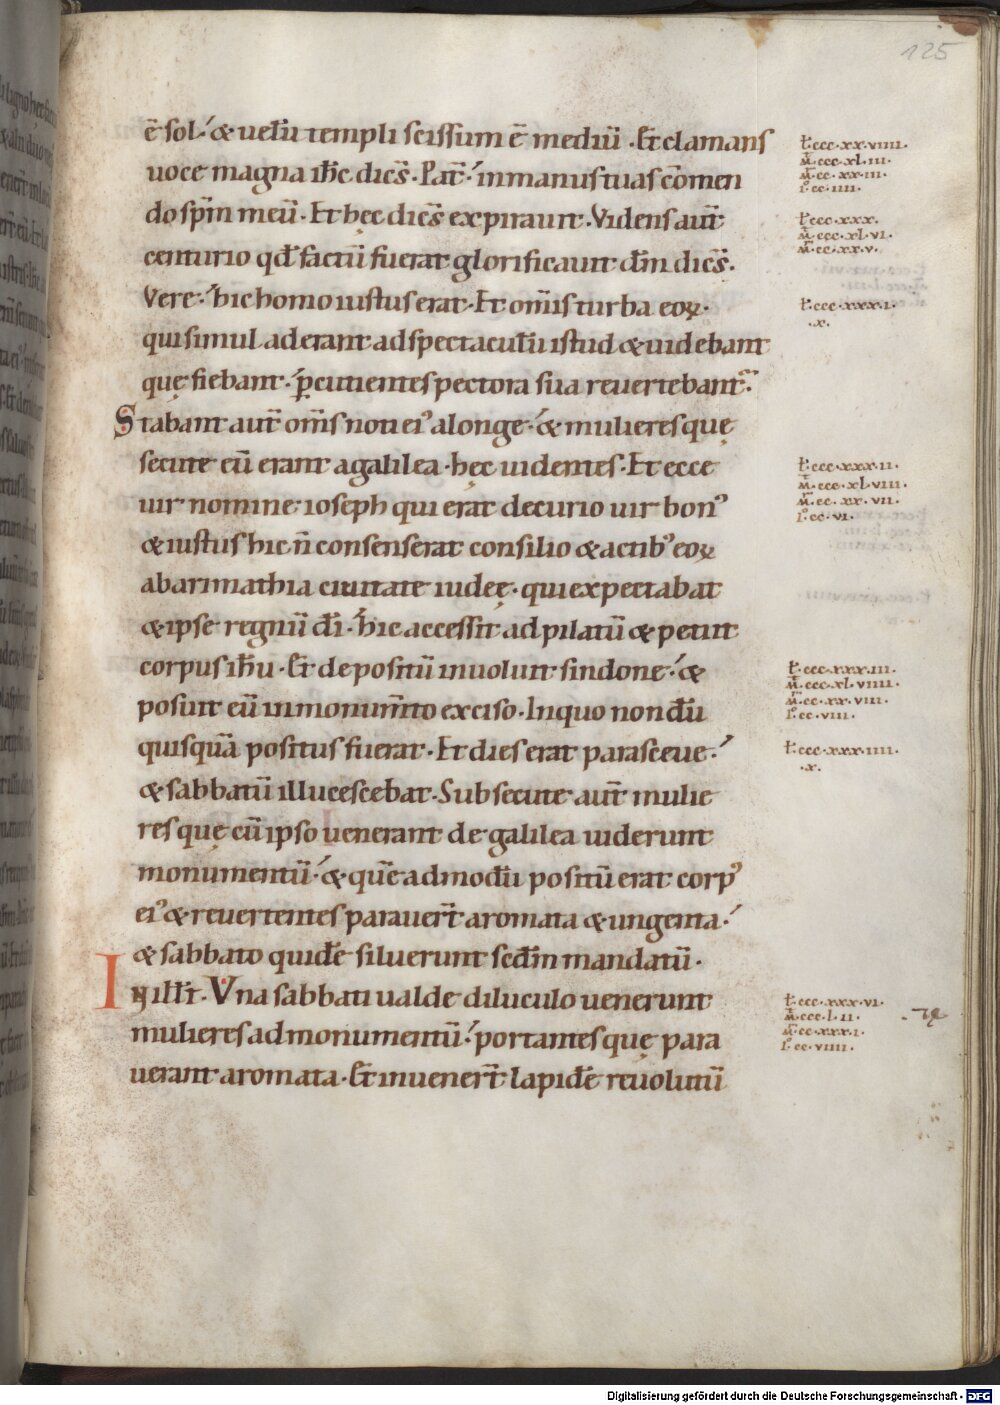 125
ē sol· & uelū templi scissum ē mediū · Et clamans
uoce magna ihc dic̄s · Pat̄ · in manus tuas cōmen
do spm̄ meū · Et hęc dic̄s expirauit · Videns aut̄
centurio qd̄ factū fuerat glorificauit dm̄ dic̄s ·
Vere · hic homo iustus erat · Et om̄is turba eoꝝ ·
qui simul aderant ad spectaculū istud & uidebant
quę fiebant · ꝑcutientes pectora sua reuertebant̄ ·
Stabant aut̄ om̄s noti ei' a longe · & mulieres quę
secute eū erant a galilea · hęc uidentes · Et ecce
uir nomine ioseph qui erat decurio uir bon'
& iustus hic n̄ consenserat consilio & actib' eoꝝ
ab arimathia ciuitate iudeę · qui expectabat
& ipse regnū dī · hic accessit ad pilatū & petiit
corpus ihū · Et depositū inuoluit sindone · &
posuit eū in monum̄to exciso · In quo nondū
quisquā positus fuerat · Et dies erat parasceue ·
& sabbatū illucescebat · Subsecute aut̄ mulie
res quę cū ipso uenerant de galilea uiderunt
monumentū · & quēadmodū positū erat corp'
ei' & reuertentes parauer̄t aromata & ungenta ·
& sabbato quidē siluerunt scdm̄ mandatū ·
IN illō t̄ · Vna sabbati ualde diluculo uenerunt
mulieres ad monumentū · portantes quę para
uerant aromata · Et inuener̄t lapidē reuolutū
L̄ ccc · xx · viiii ·
M̄ ccc · xl · iii ·
M̄ cc · xx · iii ·
I cc · iiii ·
L̄ ccc · xxx ·
M̄ ccc · xl · vi ·
M̄ cc · xx · v ·
L̄ ccc · xxx · i ·
· x ·
L̄ ccc · xxx · ii ·
M̄ ccc · xl · viii ·
M̄ cc · xx · vii ·
I cc · vi ·
L̄ ccc · xxx · iii ·
M̄ ccc · xl · viiii ·
M̄ cc · xx · viii ·
I cc · viii ·
L̄ ccc · xxx · iiii ·
· x ·
L̄ ccc · xxx · vi ·
M̄ ccc · l · ii ·
M̄ cc · xxx · i ·
I cc · viiii ·
Digitalisierung gefördert durch die Deutsche Forschungsgemeinschaft · DFG